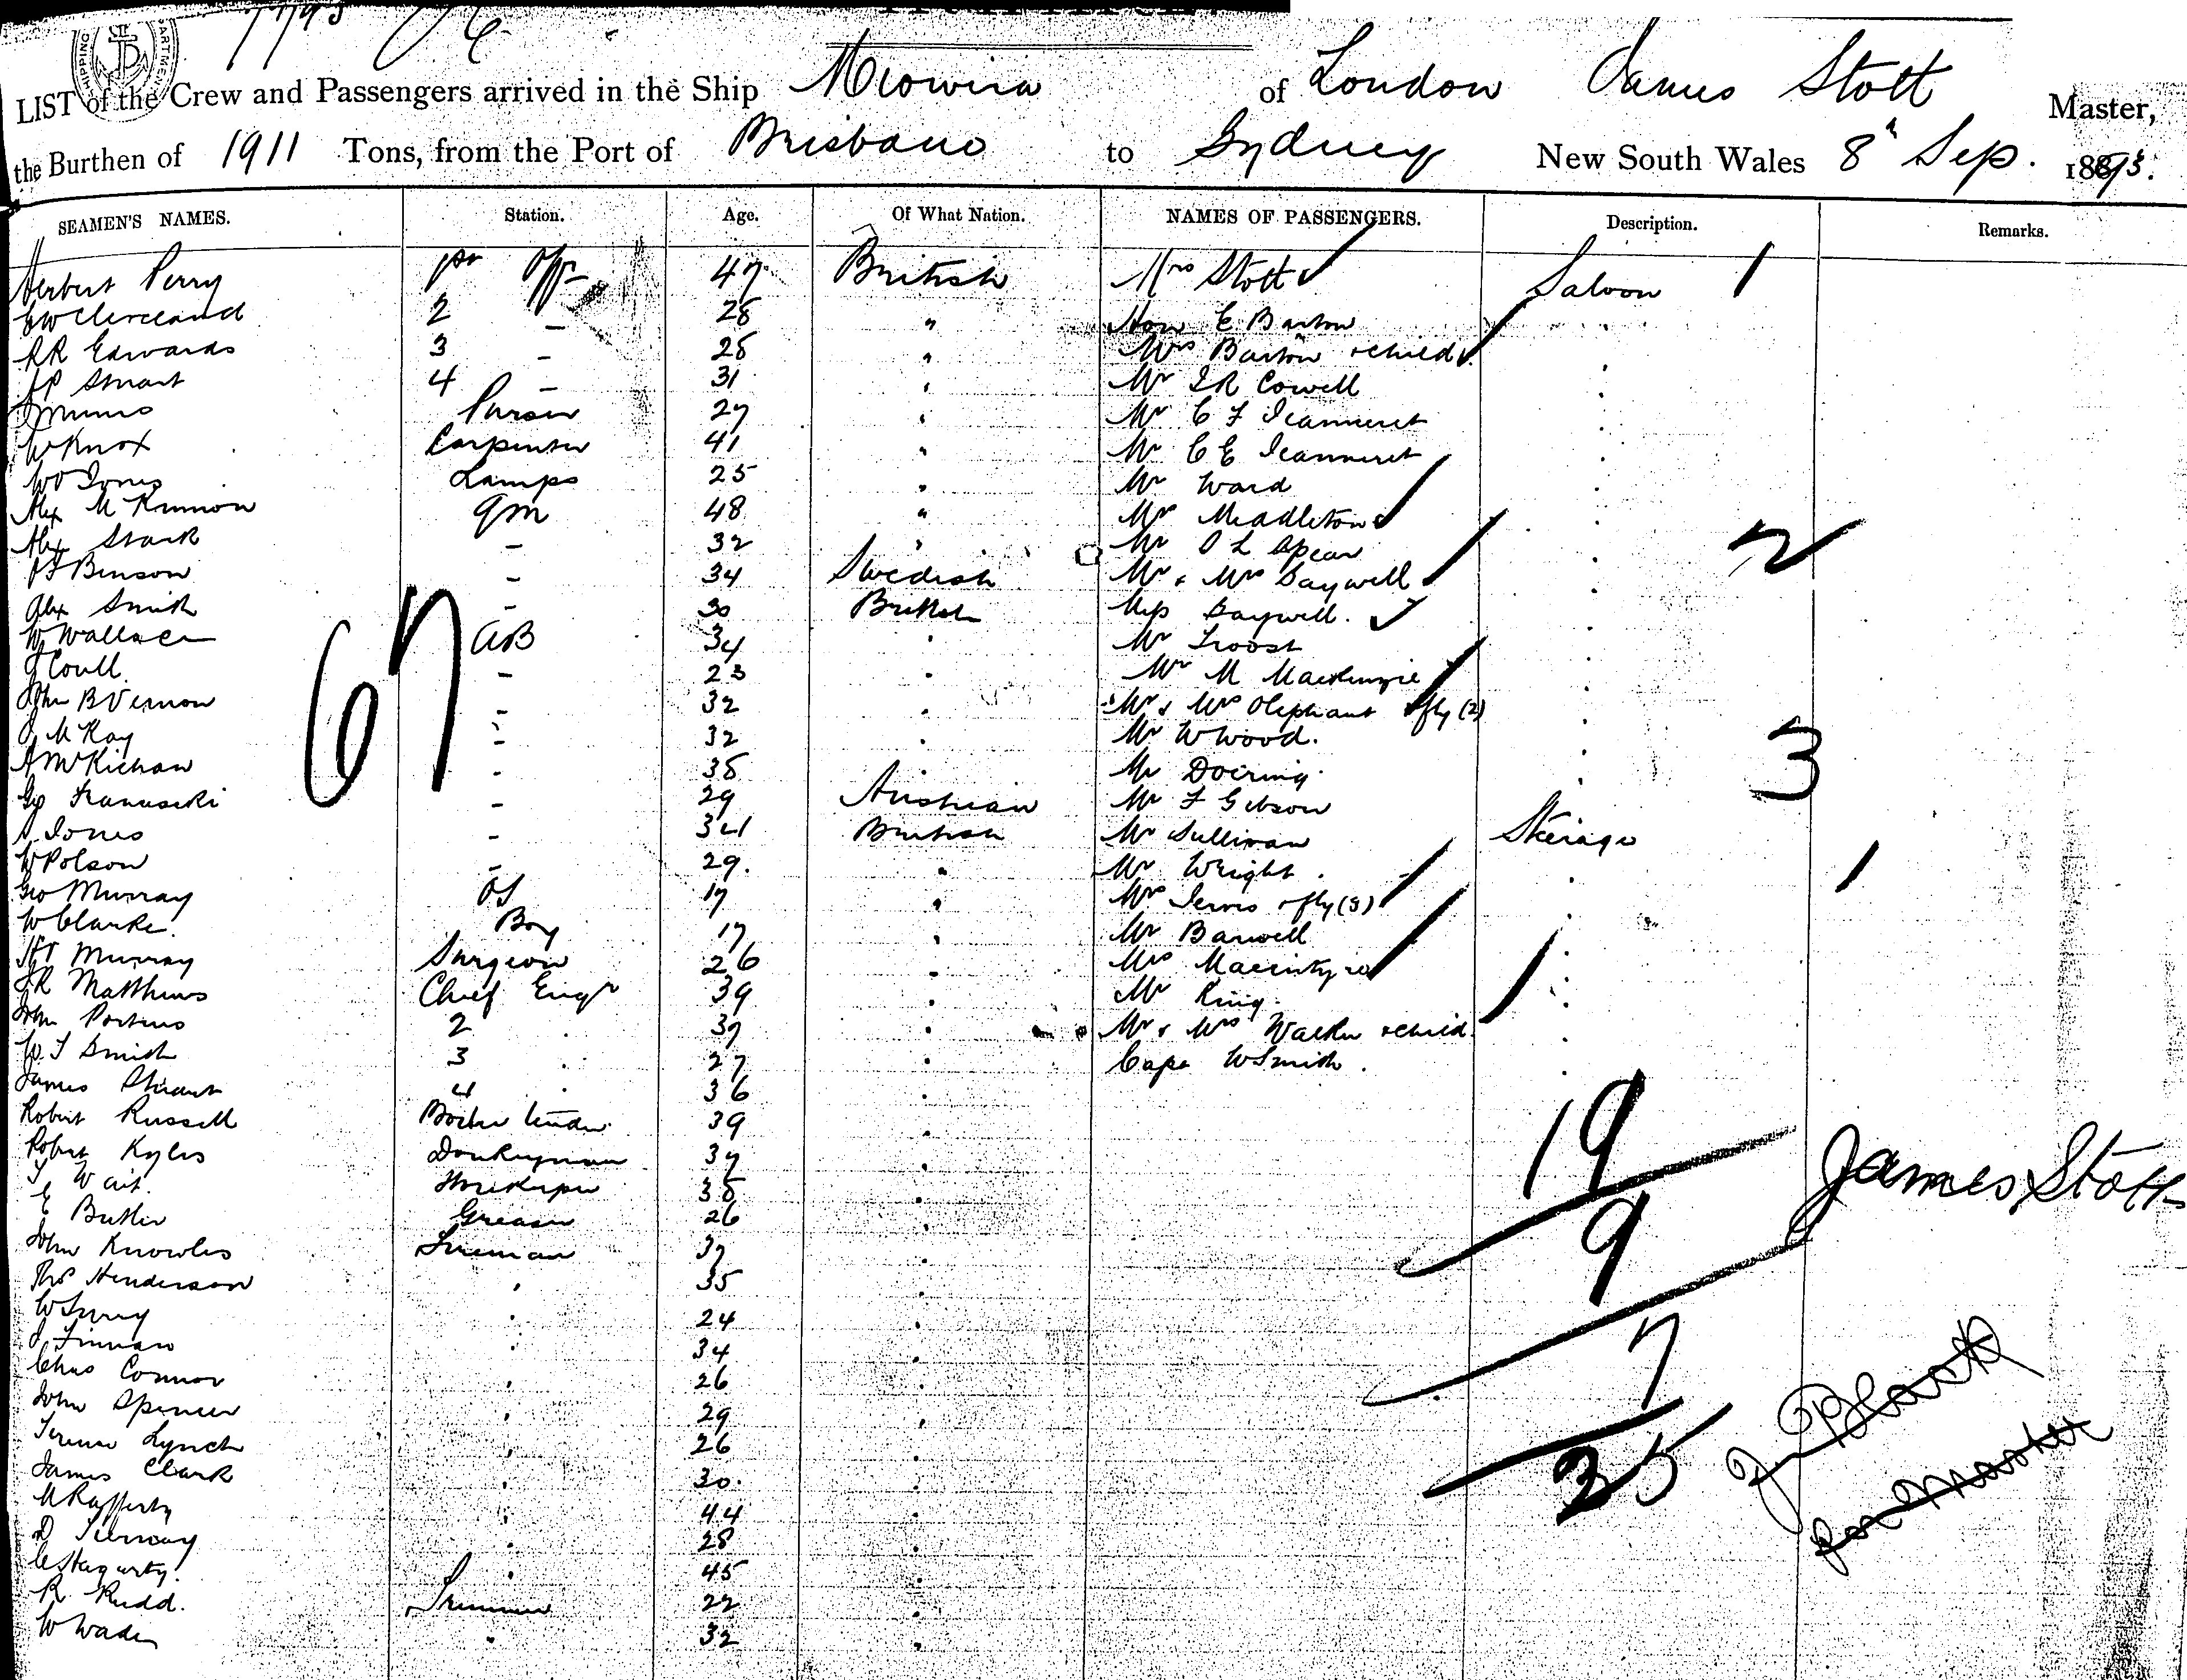 LIST of the Crew and Passengers arrived in the Ship Miowera of London James Stott Master,
the Burthen of 1911 Tons, from the Port of Brisbane to Sydney New South Wales 8th Sep. 1893.
SEAMEN'S NAMES. Station. Age. Of What Nation. NAMES OF PASSENGERS. Description. Remarks.
Herbert Perry 1st Offr 47 British Mrs Stott Saloon 1
2 - 28 " Hon E Barton
RR Edwards 3 - 28 " Mrs Barton & child
JP Stuart 4 - 31 " Mr Cowell
Munro Purser 27 " Mr C F Jeanneret
W Knox Carpenter 41 " Mr C E Jeanneret
WO Jones Lamps 25 " Mr Ward
Alex McKinnon QM 48 " Mr Middleton
Alex Stark - 32 " Mr O L Spear
Benson - 34 Swedish Mr & Mrs Baywell 2
Alex Smith - 30 British Miss Baywell.
W Wallace AB 34 " Mr Troost
J Coull - 23 " Mr M Mackenzie
John B Vernon - 32 " Mr & Mrs Oliphant & fly (2)
J McKay - 32 " Mr W Wood.
A McKichan - 38 " Mr Doering 3
29 Austrian Mr F Gibson
S. Jones - 34 British Mr Sullivan Steerage
W Polson - 29. " Mr Wright
Geo Murray OS 17 " Mrs Jervis & fly (3) 1
W Clarke. Boy 17 " Mr Barwell
Murray Surgeon 26 " Mrs Macintyre
JR Matthews Chief Engr 39 " Mr King
John Porteus 2 37 " Mr & Mrs Walker & child
W. J Smith 3 27 " Capt W Smith.
James Stuart 4 36 "
Robert Russell Boiler tender 39 "
Robert Kyles Donkeyman 37 "
T Wait. Storekeeper 38 "
E Butler Greaser 26 "
John Knowles Fireman 37 "
Thos Henderson " 35 "
W " 24 "
J Finnan " 34 "
Chas Connor " 26 "
John Spencer " 29 "
Terence Lynch " 26 "
James Clark " 30. "
M Rafferty " 44 "
D Tierney " 28 "
C Hagarty. " 45 "
R. Rudd. Trimmer 22 "
W Wade " 32 "
67
19
9
7
35
James Stott
for Master